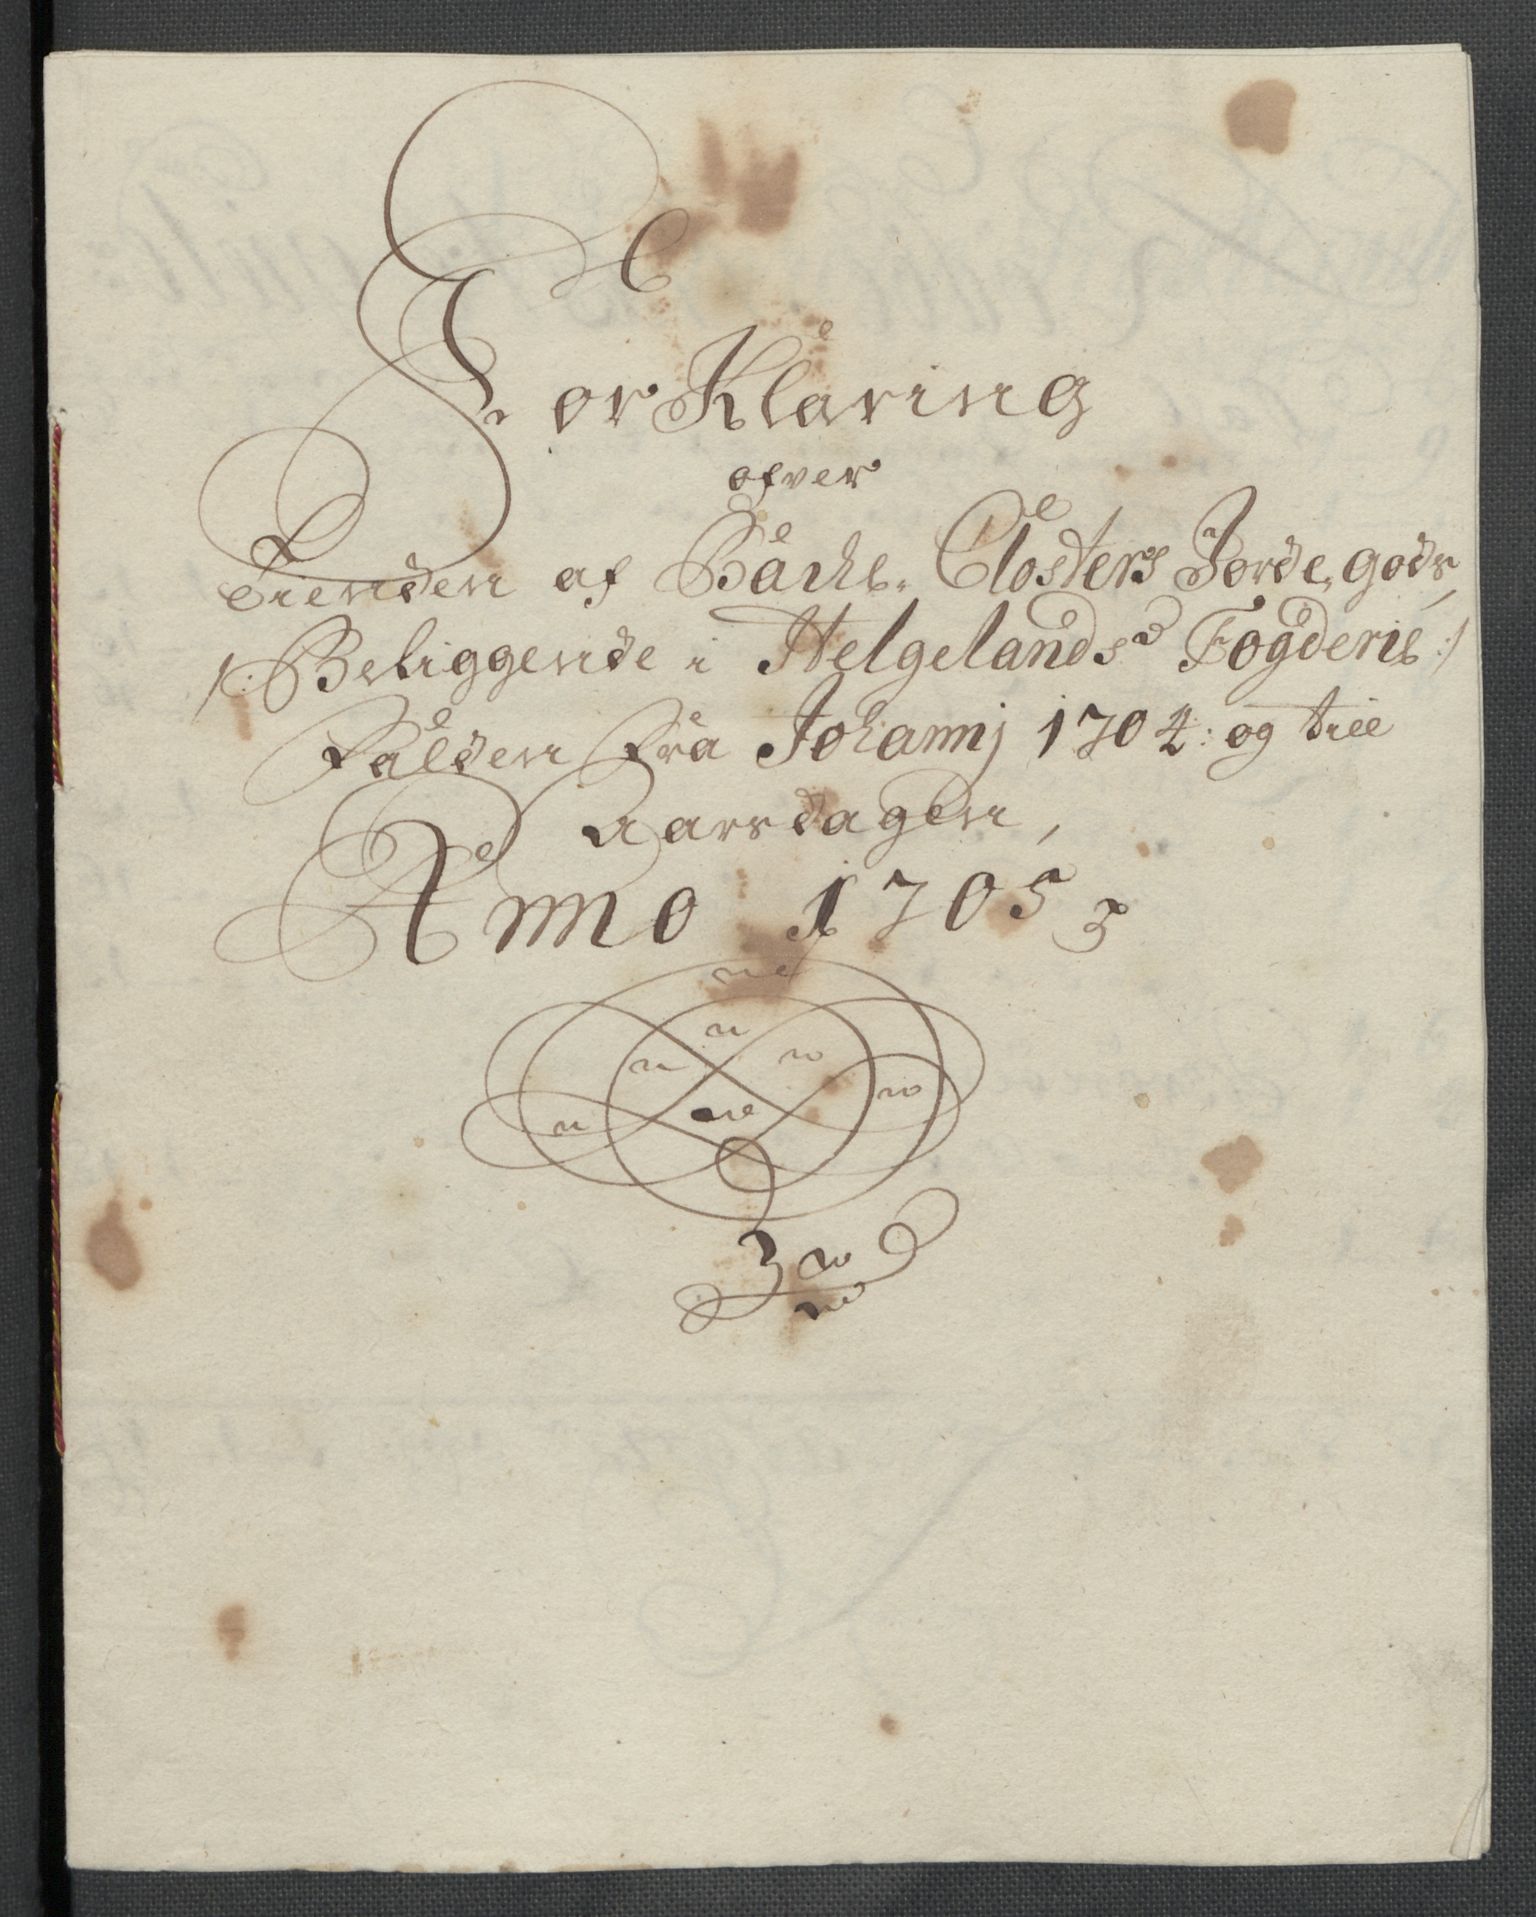 ForKlaring
ofver
Tienden af Backe Closters Jorde gods,
/: Beliggende i Helgelands Fogderie :/
Falden fra Johannj 1704: og till
aarsdagen,
Anno 1705